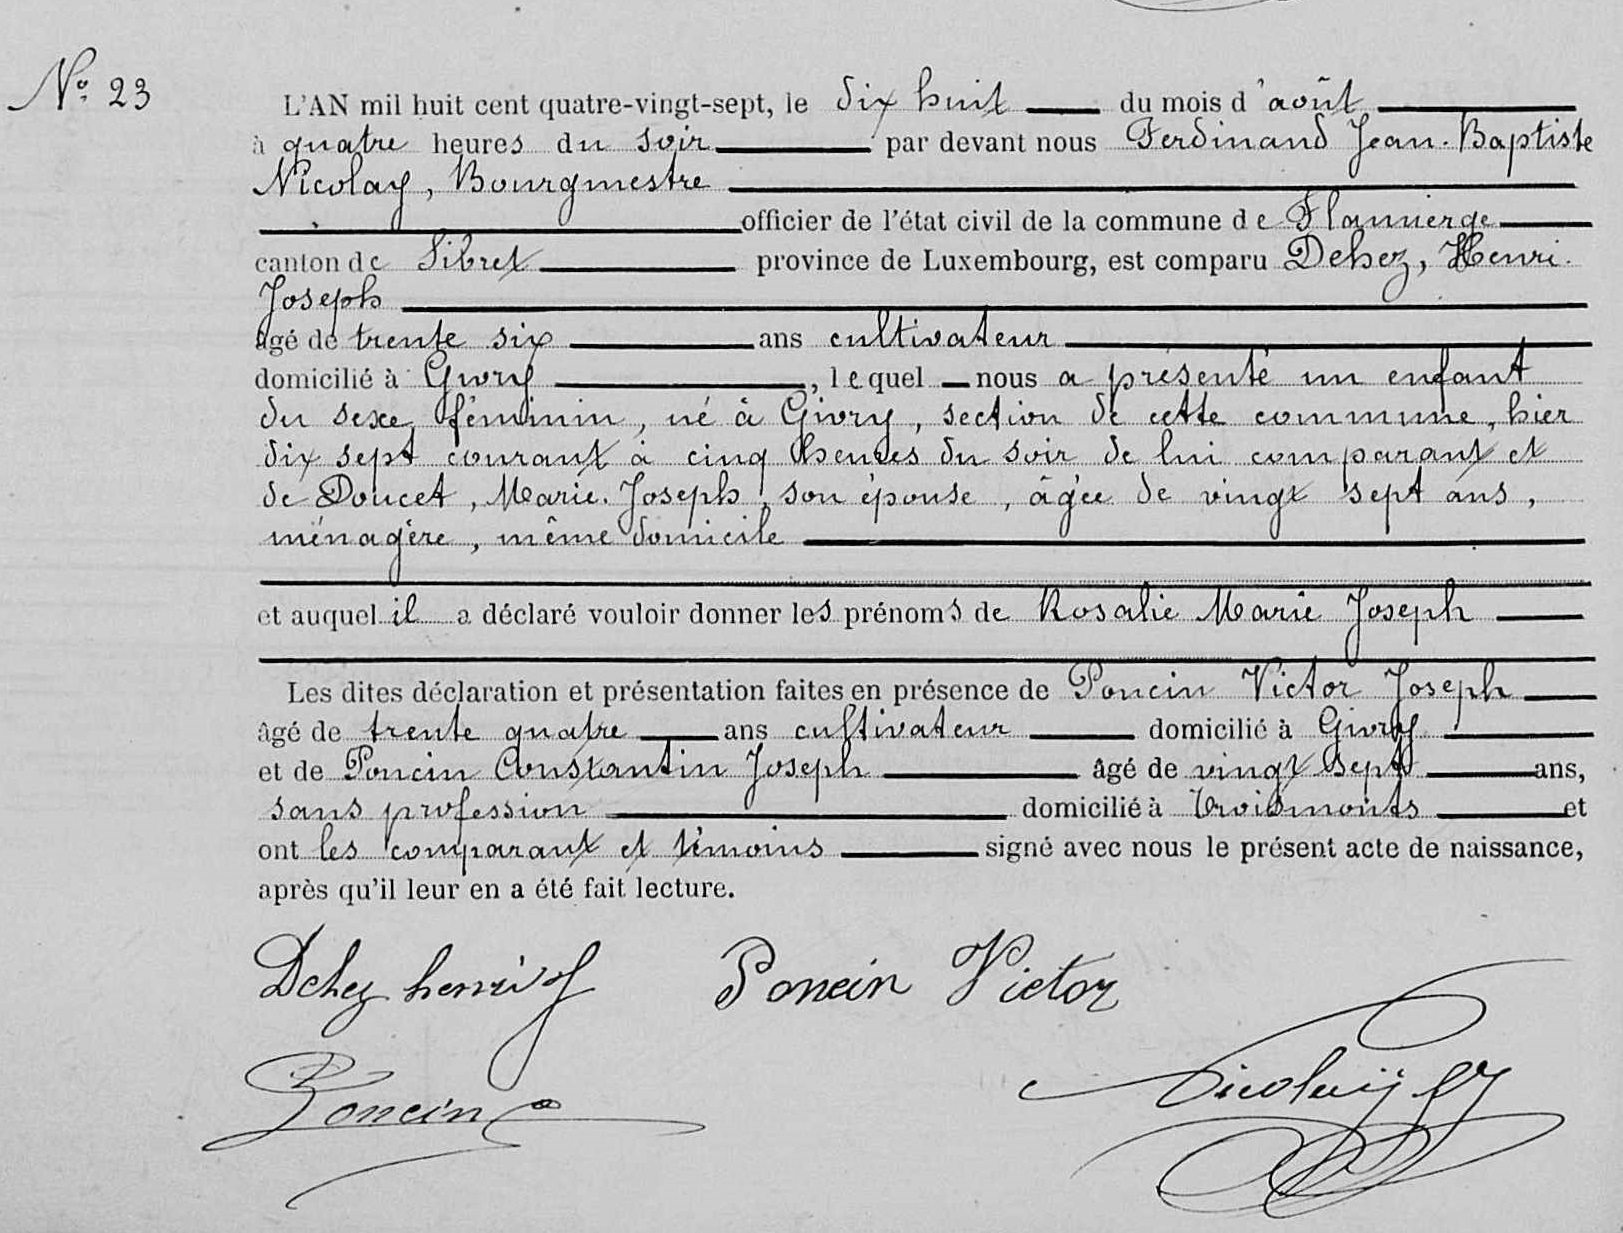 N° 23
L'AN mil huit cent quatre-vingt-sept, le dix huit du mois d'août
à quatre heures du soir par devant nous Ferdinand Jean-Baptiste
Nicolay, Bourgmestre
officier de l'état civil de la commune de Flamierge
canton de Sibret province de Luxembourg, est comparu Dehez, Henri
Joseph
âgé de trente six ans cultivateur
domicilié à Givry, lequel nous a présenté un enfant
du sexe féminin, né à Givry, section de cette commune, hier
dix sept courant à cinq heures du soir de lui comparant et
de Doucet, Marie-Joseph, son épouse, âgée de vingt sept ans,
ménagère, même domicile
et auquel il a déclaré vouloir donner les prénoms de Rosalie Marie Joseph
Les dites déclaration et présentation faites en présence de Poncin Victor Joseph
âgé de trente quatre ans cultivateur domicilié à Givry
et de Poncin Constantin Joseph âgé de vingt sept ans,
sans profession domicilié à Troismonts et
ont les comparant et témoins signé avec nous le présent acte de naissance,
après qu'il leur en a été fait lecture.
Dehez henri J Poncin Victor
Poncin Nicolaÿ